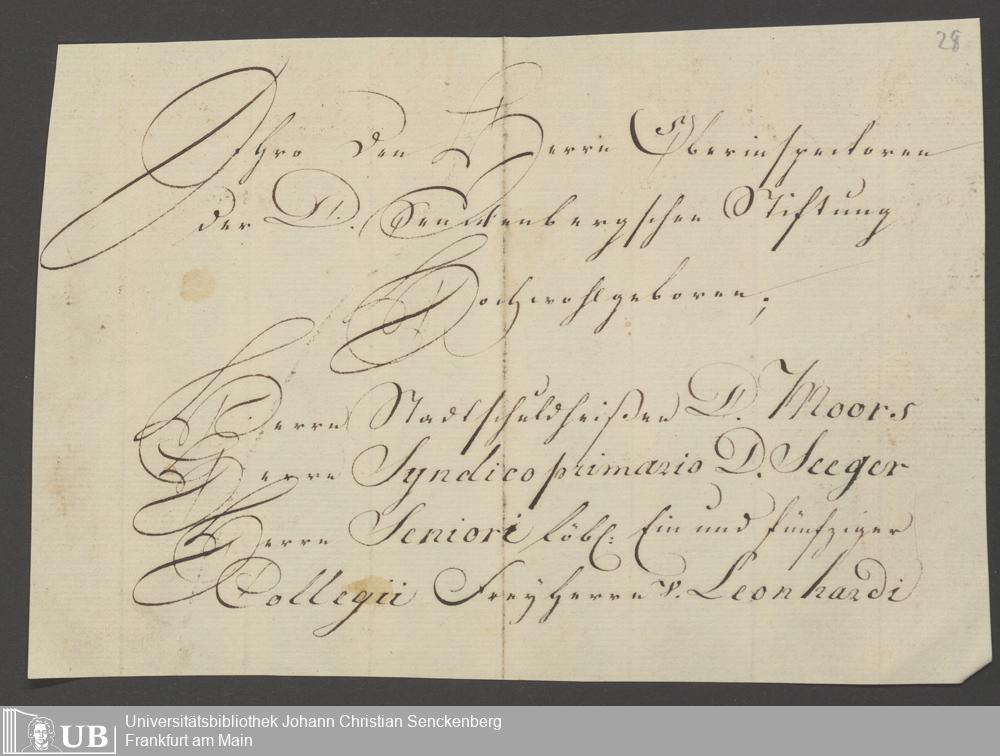 28
Ihro den Herrn Oberinspectoren
der D. Senckenbergschen Stiftung
Hochwohlgeboren,
Herrn Stadtschuldheißen D. Moors
Herrn Syndico primario D. Seeger
Herrn Seniori löbl: Ein und fünfziger
Collegii Freyherrn v. Leonhardi
UB
Universitätsbibliothek Johann Christian Senckenberg
Frankfurt am Main